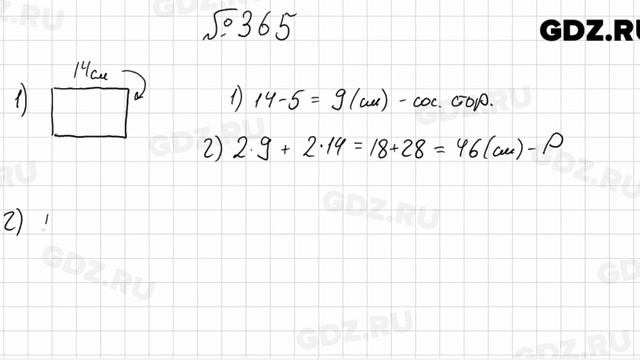 №365
GDZ.RU
14см
1)
1) 14-5 = 9(см) - сос. стор.
2) 2·9 + 2·14 = 18+28 = 46(см) - P
2)